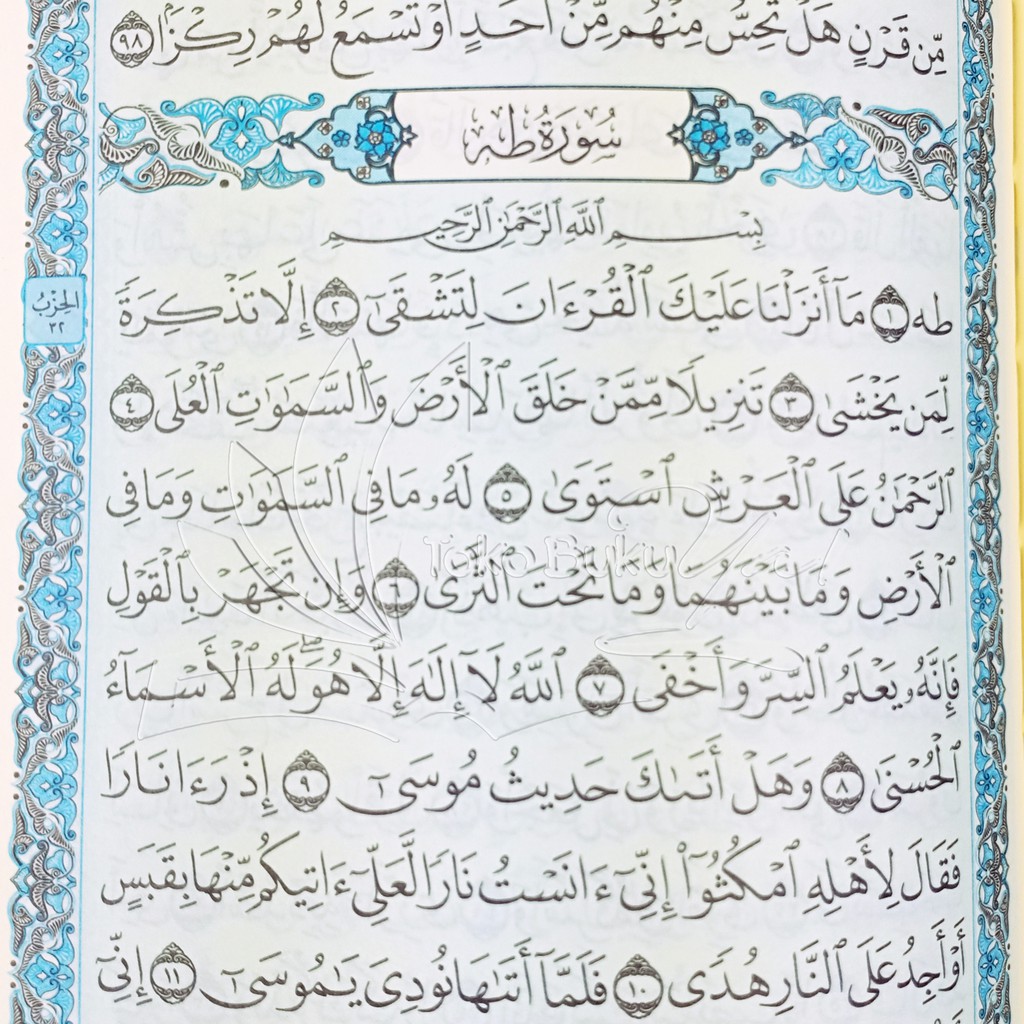 مِّن قَرْنٍ هَلْ تُحِسُّ مِنْهُم مِّنْ أَحَدٍ أَوْ تَسْمَعُ لَهُمْ رِكْزَۢا ٩٨
سُورَةُ طه
بِسْمِ ٱللَّهِ ٱلرَّحْمَٰنِ ٱلرَّحِيمِ
طه ١ مَآ أَنزَلْنَا عَلَيْكَ ٱلْقُرْءَانَ لِتَشْقَىٰٓ ٢ إِلَّا تَذْكِرَةً
الحِزْبُ
٣٢
لِّمَن يَخْشَىٰ ٣ تَنزِيلًا مِّمَّنْ خَلَقَ ٱلْأَرْضَ وَٱلسَّمَٰوَٰتِ ٱلْعُلَى ٤
ٱلرَّحْمَٰنُ عَلَى ٱلْعَرْشِ ٱسْتَوَىٰ ٥ لَهُۥ مَا فِى ٱلسَّمَٰوَٰتِ وَمَا فِى
ٱلْأَرْضِ وَمَا بَيْنَهُمَا وَمَا تَحْتَ ٱلثَّرَىٰ ٦ وَإِن تَجْهَرْ بِٱلْقَوْلِ
Toko Buku
فَإِنَّهُۥ يَعْلَمُ ٱلسِّرَّ وَأَخْفَى ٧ ٱللَّهُ لَآ إِلَٰهَ إِلَّا هُوَۖ لَهُ ٱلْأَسْمَآءُ
ٱلْحُسْنَىٰ ٨ وَهَلْ أَتَىٰكَ حَدِيثُ مُوسَىٰٓ ٩ إِذْ رَءَا نَارًا
فَقَالَ لِأَهْلِهِ ٱمْكُثُوٓا۟ إِنِّىٓ ءَانَسْتُ نَارًا لَّعَلِّىٓ ءَاتِيكُم مِّنْهَا بِقَبَسٍ
أَوْ أَجِدُ عَلَى ٱلنَّارِ هُدًى ١٠ فَلَمَّآ أَتَىٰهَا نُودِىَ يَٰمُوسَىٰٓ ١١ إِنِّىٓ